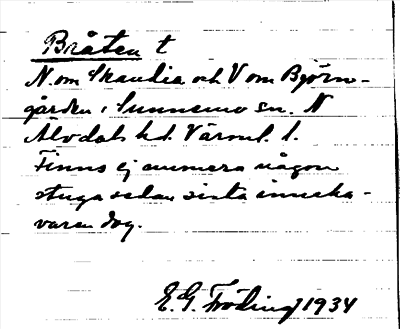 Bråten t
N om Skandia och V om Björn-
gården i Sunnemo sn. N
Älvdals hd. Värml. l.
Finns ej nummera någon
stuga sedan sista inneha-
varen dog.
E. G. Fröding 1934